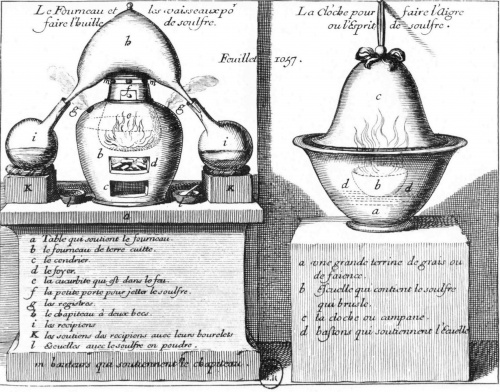 Le Fourneau et les vaisseaux po^r
faire l'huille de soulfre.
La Cloche pour faire l'Aigre
ou l'Esprit de soulfre.
Feuillet 1057.
h
f
g
g
e
i
i
b
d
c
K
K
l
l
a
c
d
b
d
a
a Table qui soutient le fourneau.
b le fourneau de terre cuitte.
c le cendrier.
d le foyer.
e la cucurbite qui est dans le feu.
f la petite porte pour jetter le soulfre.
g les registres.
h le chapiteau à deux becs.
i les recipiens
K les soutiens des recipiens avec leurs bourelets
l Escuelles avec le soulfre en poudre.
m hauteurs qui soutiennent le chapiteau.
a une grande terrine de grais ou
de faience.
b Escuelle qui contient le soulfre
qui brusle.
c la cloche ou campane.
d bastons qui soutiennent l'Escuelle